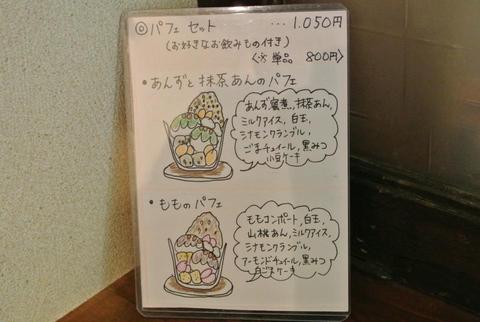 ◎パフェ セット …1.050円
(お好きなお飲みもの付き)
〈※単品 800円〉
・あんずと抹茶あんのパフェ
あんず蜜煮,抹茶あん,
ミルクアイス,白玉,
シナモンクランブル,
ごまチュイール,黒みつ
小豆ケーキ
・もものパフェ
モモコンポート,白玉,
山桃あん,ミルクアイス,
シナモンクランブル,
アーモンドチュイール,黒みつ
白ごまケーキ